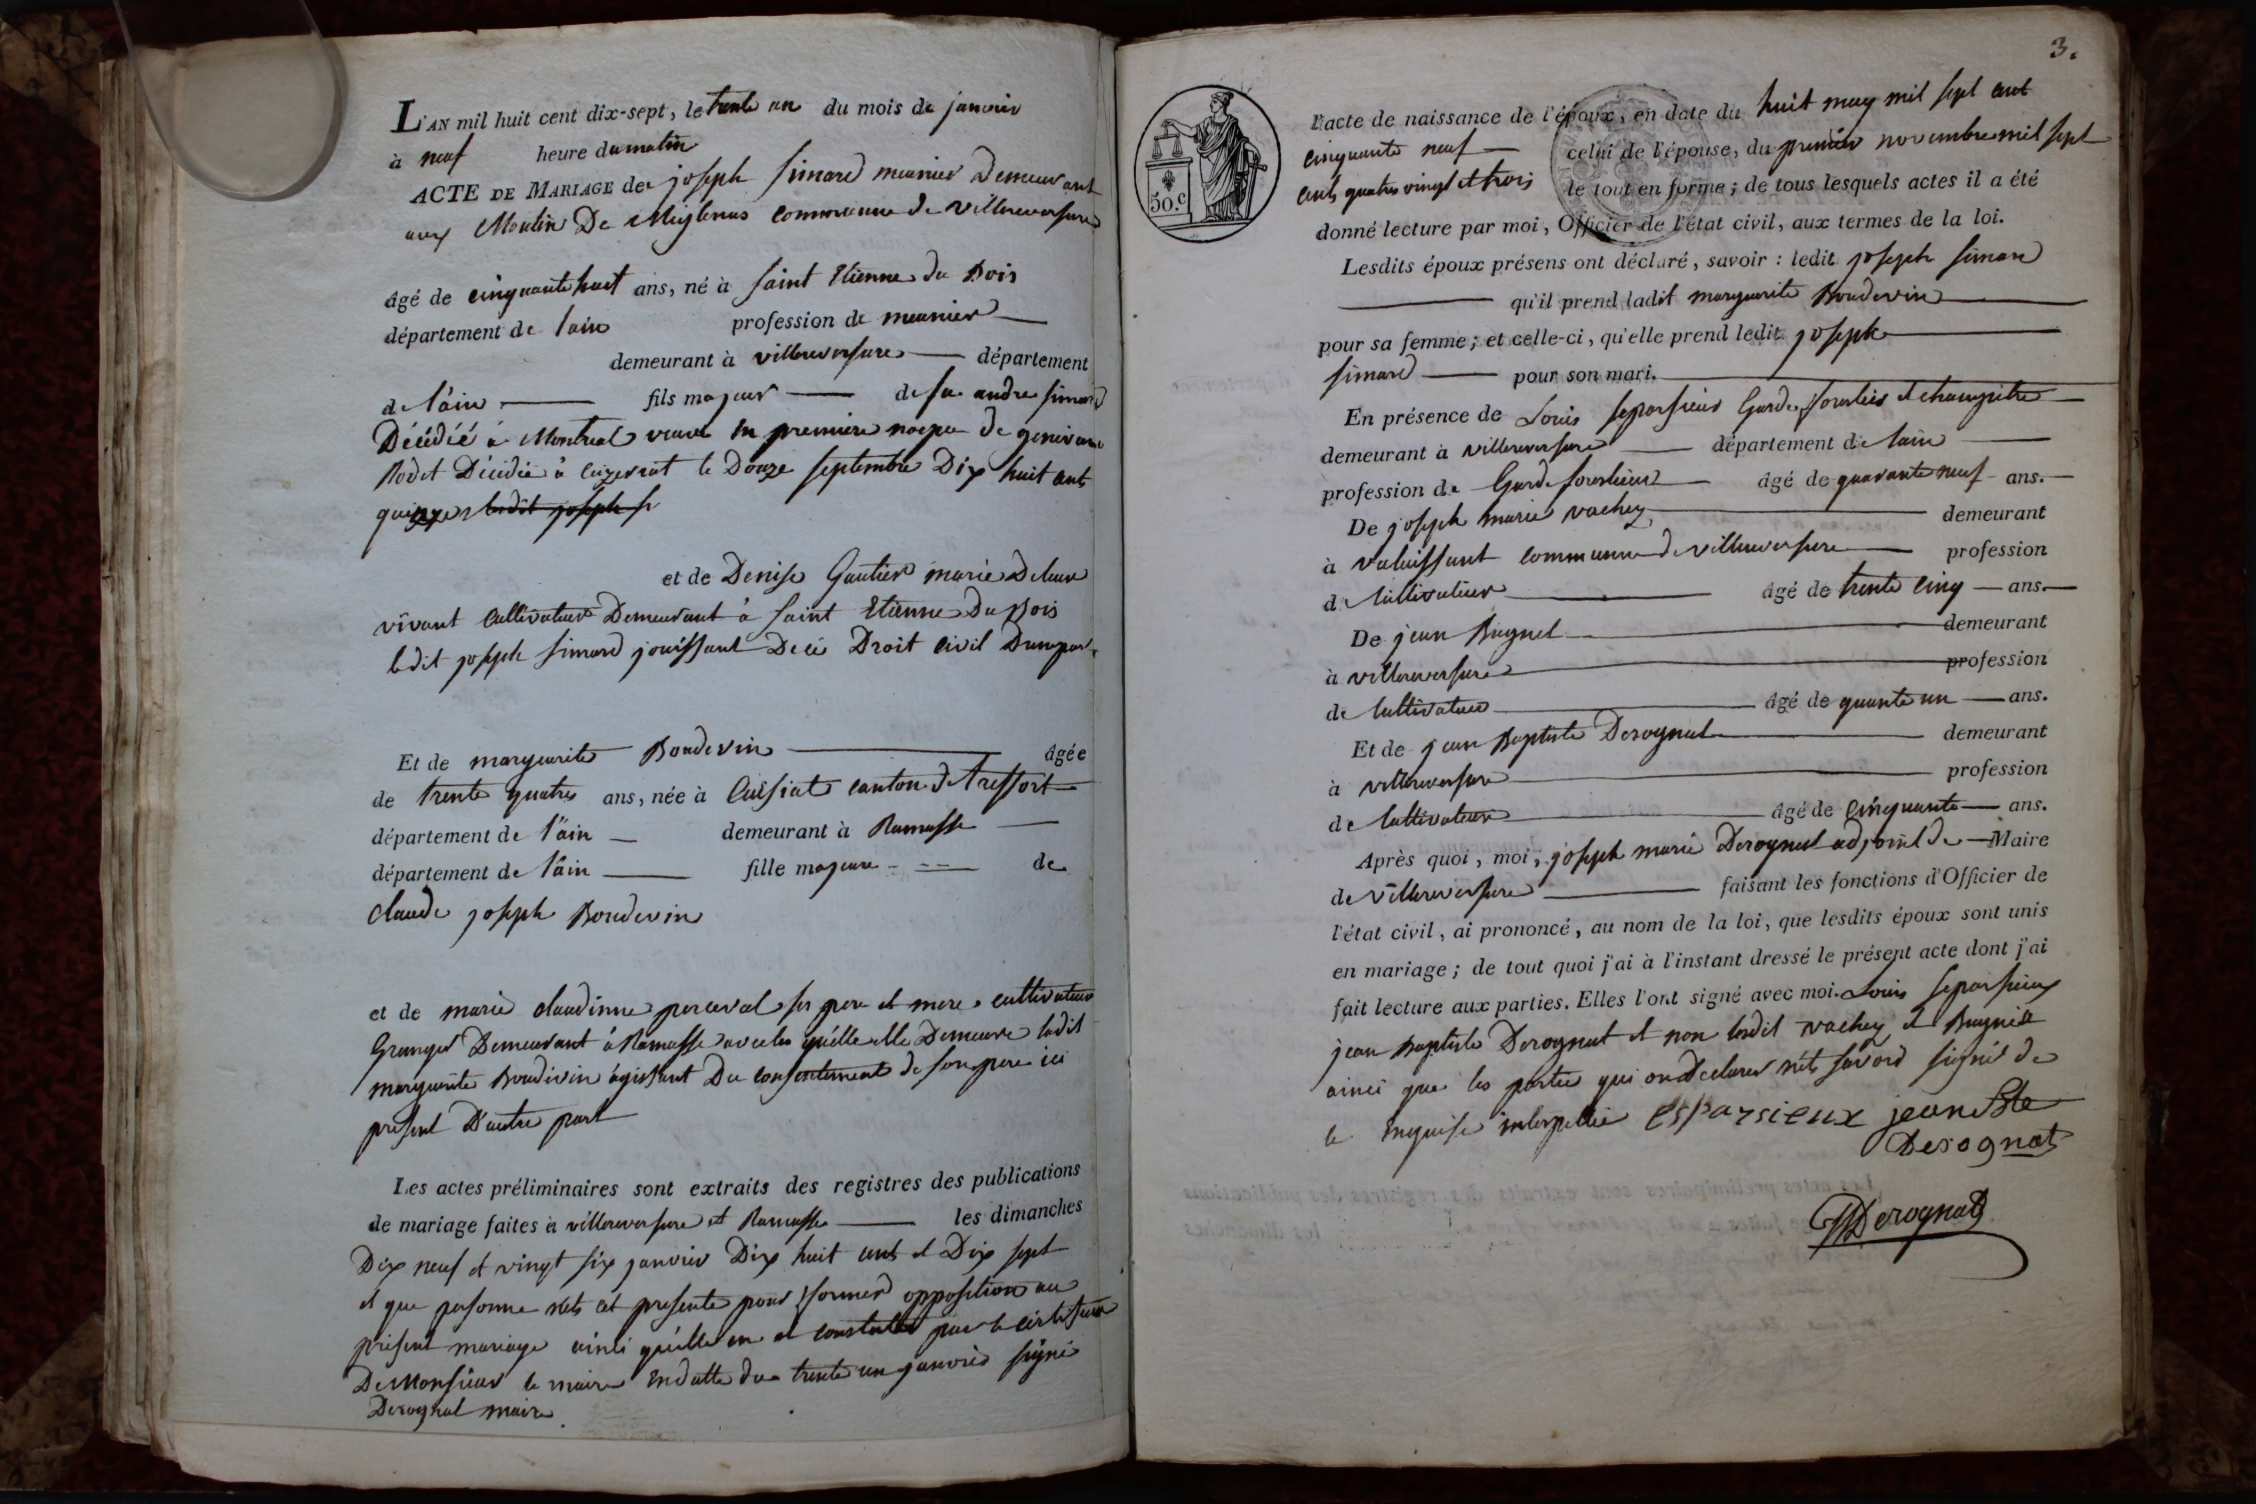 L'AN mil huit cent dix-sept, le trente un du mois de janvier
à neuf heure du matin
ACTE DE MARIAGE de joseph simard meunier Demeurant
aux Moulin De commune de villereversure
âgé de cinquante huit ans, né à saint Etienne du Bois
département de l'ain profession de meunier
demeurant à villereversure département
de l'ain fils majeur de feu andre simard
Décédéé à Montreal veuve en premiere nopce de
Rodet Décédée à cuzerat le Douze septembre Dix huit cents
quinze ledit joseph si
et de Denise Gautier marie
vivant cultivateur Demeurant à saint Etienne Du Bois
ledit joseph simard jouissant De cé Droit civil Dunepart
Et de marguerite Boudevin âgée
de trente quatre ans, née à Cuisiat canton de treffort
département de l'ain demeurant à Ramasse
département de l'ain fille majeure de
claude joseph Boudevin
et de marie claudinne perceval ses pere et mere cultivateur
Granger Demeurant à Ramasse avec les quelle elle Demeure ladit
marguerite Boudevin agissant Du consentement de son pere ici
présent D'autre part
Les actes préliminaires sont extraits des registres des publications
de mariage faites à villereversure et Ramasse les dimanches
Dix neuf et vingt six janvier Dix huit cents et Dix sept
et que personne n'éts cét presente pour former opposition au
présent mariage ainsi quélle en et par le
De Monsieur le maire En datte du trente un janvier signé
Derognat maire
3.
50.c
l'acte de naissance de l'époux, en date du huit may mil sept cent
cinquante neuf celui de l'épouse, du premier novembre mil sept
cents quatre vingt et trois le tout en forme; de tous lesquels actes il a été
donné lecture par moi, Officier de l'état civil, aux termes de la loi.
Lesdits époux présens ont déclaré, savoir: ledit joseph simard
qu'il prend ladit marguerite Boudevin
pour sa femme; et celle-ci, qu'elle prend ledit joseph
simard pour son mari.
En présence de Louis separsieux Garde forestier et champetre
demeurant à villereversure département de l'ain
profession de Garde forestier âgé de quarante neuf ans.
De joseph marie vachez demeurant
à valuissant commune de villereversure profession
de cultivateur âgé de trente cinq ans.
De jean Bugnet demeurant
à villereversure profession
de cultivateur âgé de quante un ans.
Et de jean Baptiste Derognat demeurant
à villereversure profession
de cultivateur âgé de cinquante ans.
Après quoi, moi, joseph marie Derognat adjoint de Maire
de villereversure faisant les fonctions d'Officier de
l'état civil, ai prononcé, au nom de la loi, que lesdits époux sont unis
en mariage; de tout quoi j'ai à l'instant dressé le présent acte dont j'ai
fait lecture aux parties. Elles l'ont signé avec moi. Louis separsieux
jean Baptiste Derognat et non ledit vachez et
ainci que les partie qui on declarer néts savoid signér de
le enquise interpellée esparsieux jean Bte
Derognat
Derognat